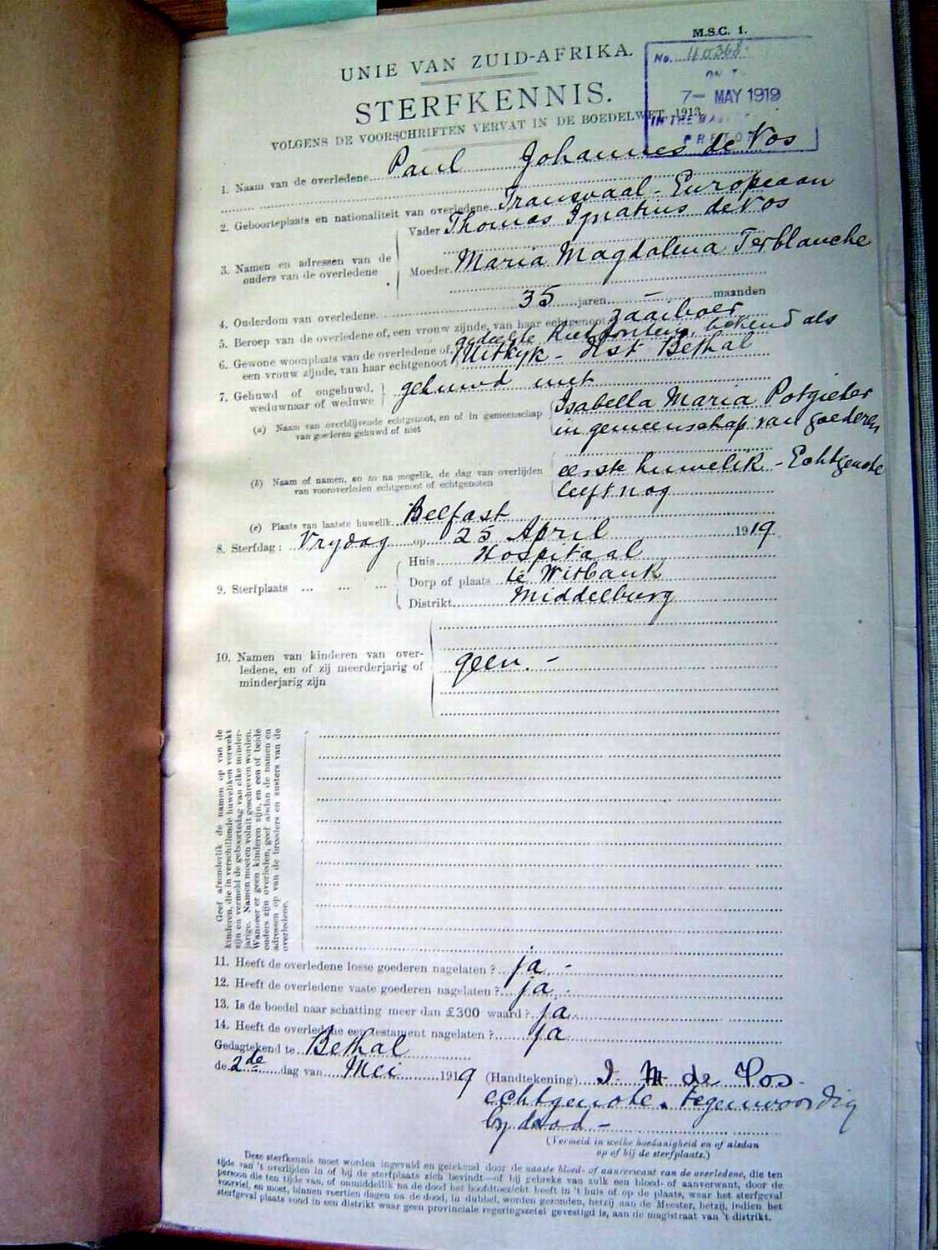 M.S.C. 1.
UNIE VAN ZUID-AFRIKA.
STERFKENNIS.
VOLGENS DE VOORSCHRIFTEN VERVAT IN DE BOEDELWET, 1913.
No. 40368
7- MAY 1919
IN THE
1. Naam van de overledene Paul Johannes de Vos
2. Geboorteplaats en nationaliteit van overledene Transvaal - Europeaan
3. Namen en adressen van de ouders van de overledene
Vader Thomas Ignatius de Vos
Moeder Maria Magdalena Terblanche
4. Ouderdom van overledene 35 jaren - maanden
5. Beroep van de overledene of, een vrouw zijnde, van haar echtgenoot zaaiboer
6. Gewone woonplaats van de overledene of, gedeelte Rietfontein, bekend als
een vrouw zijnde, van haar echtgenoot Uitkyk - Dist Bethal
7. Gehuwd of ongehuwd, weduwnaar of weduwe gehuwd met
(a) Naam van overblijvende echtgenoot, en of in gemeenschap Isabella Maria Potgieter
van goederen gehuwd of niet in gemeenschap van goederen
(b) Naam of namen, en zo na mogelik, de dag van overlijden eerste huwelik - Echtgenote
van vooroverleden echtgenoot of echtgenoten leeft nog
(c) Plaats van laatste huwelik Belfast
8. Sterfdag: Vrydag op 25 April 1919
9. Sterfplaats ... ... ...
Huis Hospitaal
Dorp of plaats te Witbank
Distrikt Middelburg
10. Namen van kinderen van over-
ledene, en of zij meerderjarig of geen. -
minderjarig zijn
Geef afzonderlik de namen op van de
kinderen, die in verschillende huweliken verwekt
zijn en vermeld de geboortedag van elke minder-
jarige. Namen moeten voluit geschreven worden.
Wanneer er geen kinderen zijn, en een of beide
ouders zijn overleden, geef alsdan de namen en
adressen op van de broeders en zusters van de
overledene.
11. Heeft de overledene losse goederen nagelaten? ja -
12. Heeft de overledene vaste goederen nagelaten? ja -
13. Is de boedel naar schatting meer dan £300 waard? ja
14. Heeft de overledene een testament nagelaten? ja
Gedagtekend te Bethal
de 2de dag van Mei 1919 (Handtekening) I. M. de Vos -
echtgenote. tegenwoordig
by dood -
(Vermeld in welke hoedanigheid en of alsdan
op of bij de sterfplaats.)
Deze sterfkennis moet worden ingevuld en getekend door de naaste bloed- of aanverwant van de overledene, die ten
tijde van 't overlijden in of bij de sterfplaats zich bevindt—of bij gebreke van zulk een bloed- of aanverwant, door de
persoon die ten tijde van, of onmiddellik na de dood het hoofdtoezicht heeft in 't huis of op de plaats, waar het sterfgeval
voorviel, en moet, binnen veertien dagen na de dood, in dubbel, worden gezonden, hetzij aan de Meester, hetzij, indien het
sterfgeval plaats vond in een distrikt waar geen provinciale regeringszetel gevestigd is, aan de magistraat van 't distrikt.